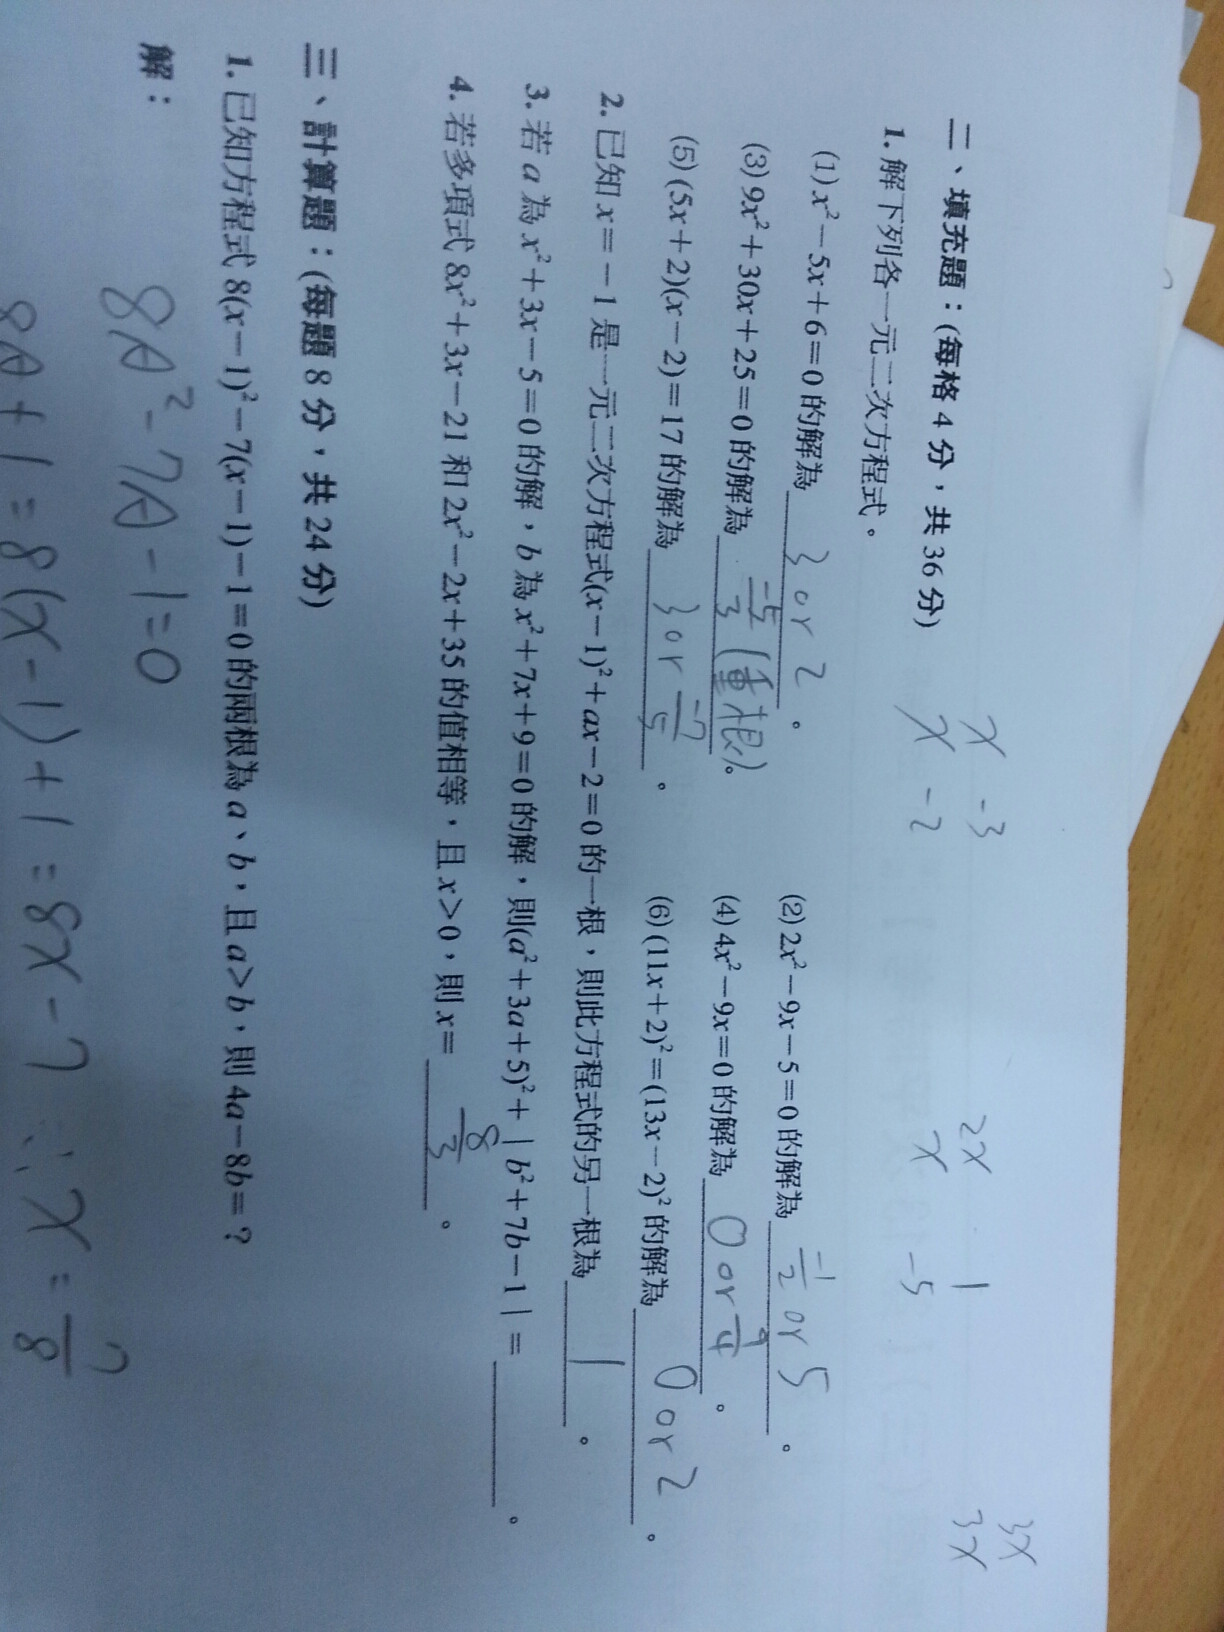 二、填充題：(每格 4 分，共 36 分)
x -3
x -2
2x 1
x -5
3x
3x
1. 解下列各一元二次方程式。
(1) x²－5x＋6＝0 的解為 3 or 2 。
(2) 2x²－9x－5＝0 的解為 -1/2 or 5 。
(3) 9x²＋30x＋25＝0 的解為 -5/3 (重根)。
(4) 4x²－9x＝0 的解為 0 or 9/4 。
(5) (5x＋2)(x－2)＝17 的解為 3 or -7/5 。
(6) (11x＋2)²＝(13x－2)² 的解為 0 or 2 。
2. 已知 x＝－1 是一元二次方程式(x－1)²＋ax－2＝0 的一根，則此方程式的另一根為 1 。
3. 若 a 為 x²＋3x－5＝0 的解，b 為 x²＋7x＋9＝0 的解，則(a²＋3a＋5)²＋｜b²＋7b－1｜＝ 。
4. 若多項式 8x²＋3x－21 和 2x²－2x＋35 的值相等，且 x＞0，則 x＝ 8/3 。
三、計算題：(每題 8 分，共 24 分)
1. 已知方程式 8(x－1)²－7(x－1)－1＝0 的兩根為 a、b，且 a＞b，則 4a－8b＝？
解：
8A²-7A-1=0
8A+1=8(x-1)+1=8x-7 ∴x=7/8